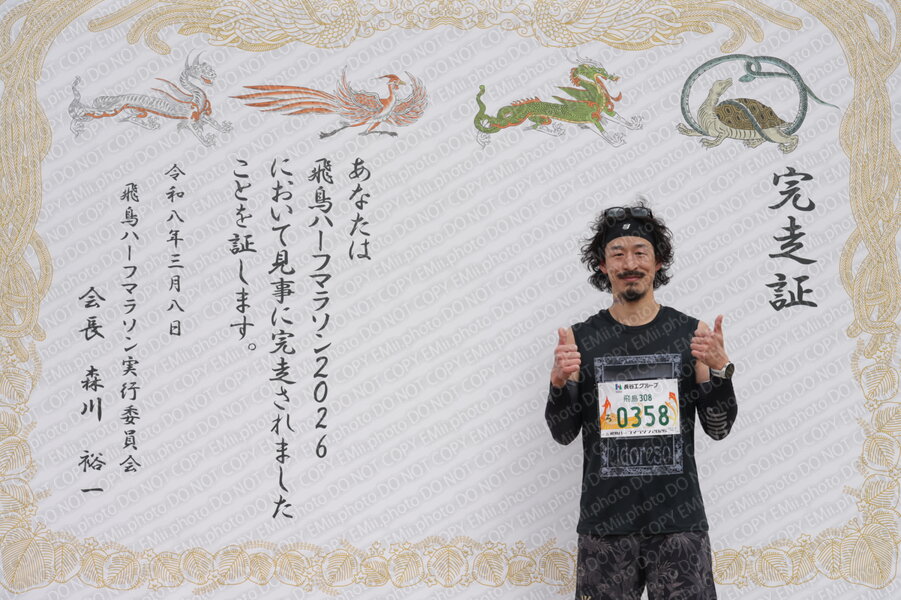 完走証
あなたは
飛鳥ハーフマラソン2026
において見事に完走されました
ことを証します。
令和八年三月八日
飛鳥ハーフマラソン実行委員会
会長 森川 裕一
長谷工グループ
飛鳥308
ろ 0358
eldoreso
EMii.photo DO NOT COPY